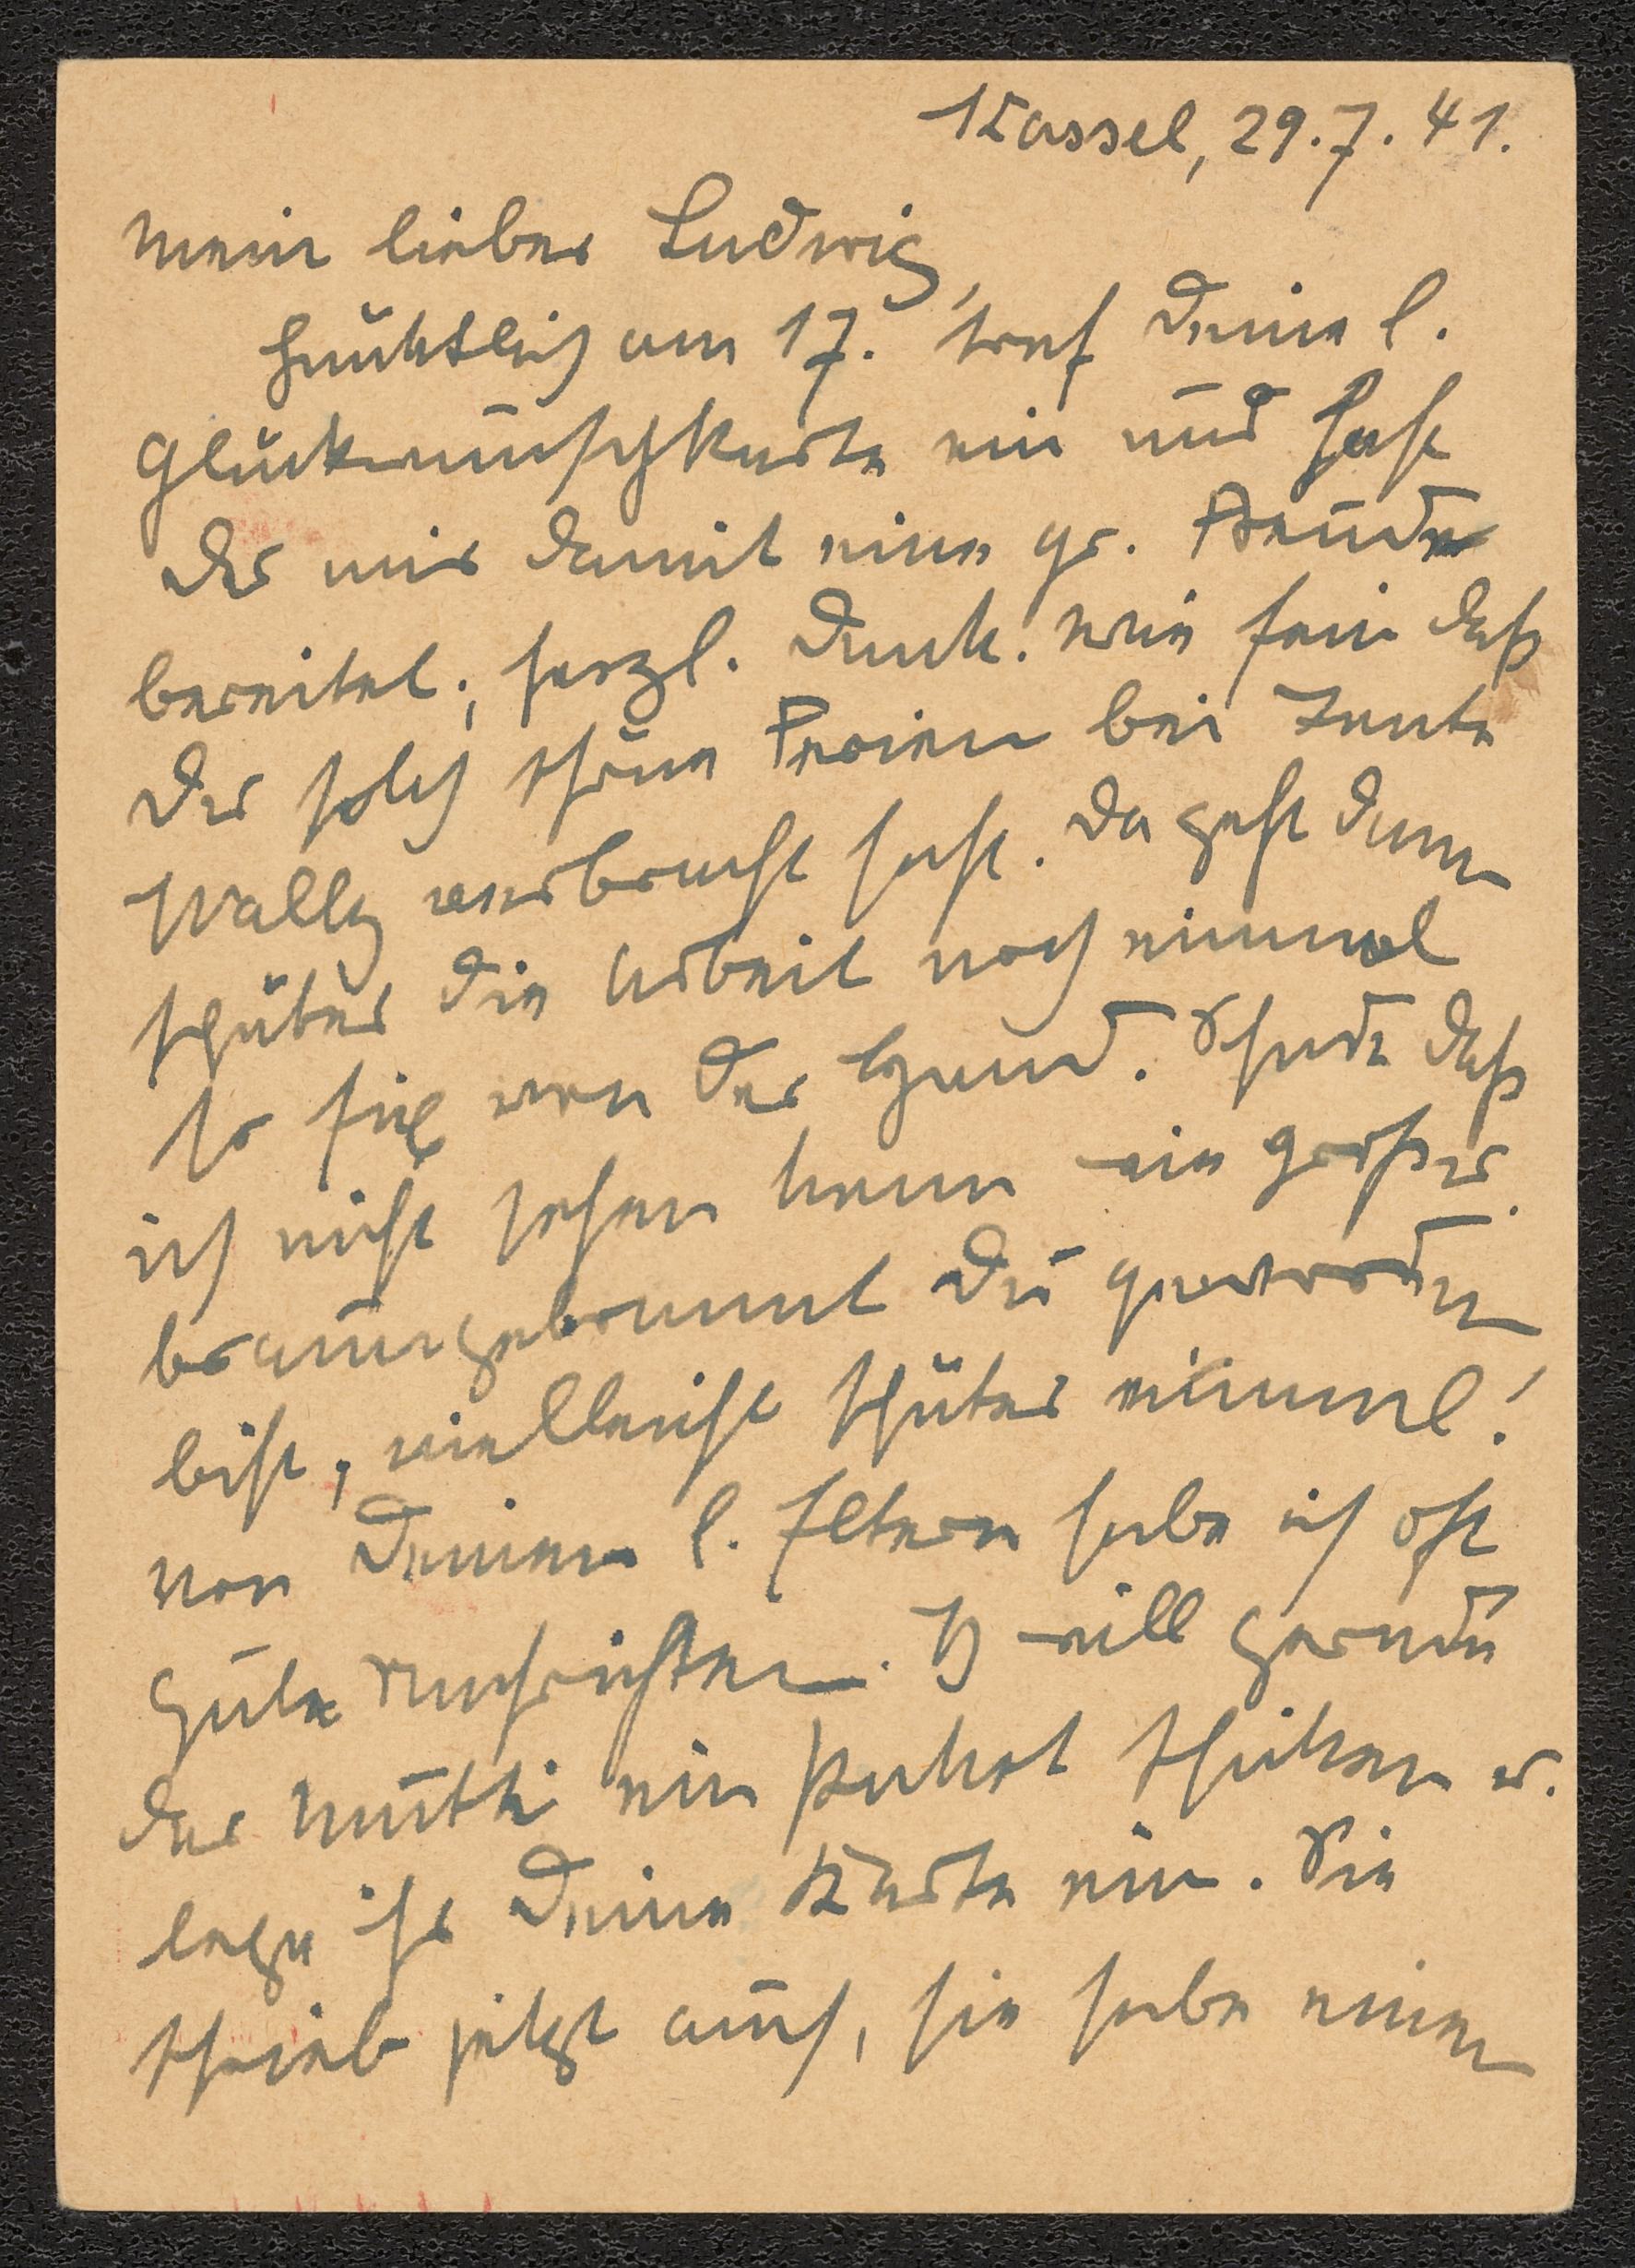 Kassel, 29.7.41.
Mein lieber Ludwig,
Pünktlich am 17. traf Deine l.
Glückwunschkarte ein und hast
Du mir damit eine gr. Freude
bereitet, herzl. Dank. Wie fein daß
Du solch schöne Ferien bei Tante
Wally verbracht hast. Da geht dann
später die Arbeit noch einmal
so fix von der Hand. Schade daß
ich nicht sehen kann wie groß u.
braungebrannt Du geworden
bist, vielleicht später einmal!
Von Deinen l. Eltern habe ich oft
gute Nachrichten. Ich will gerade
der Mutti ein Paket schicken u.
lege ihr Deine Karte ein. Sie
schrieb jetzt auch, sie habe einen